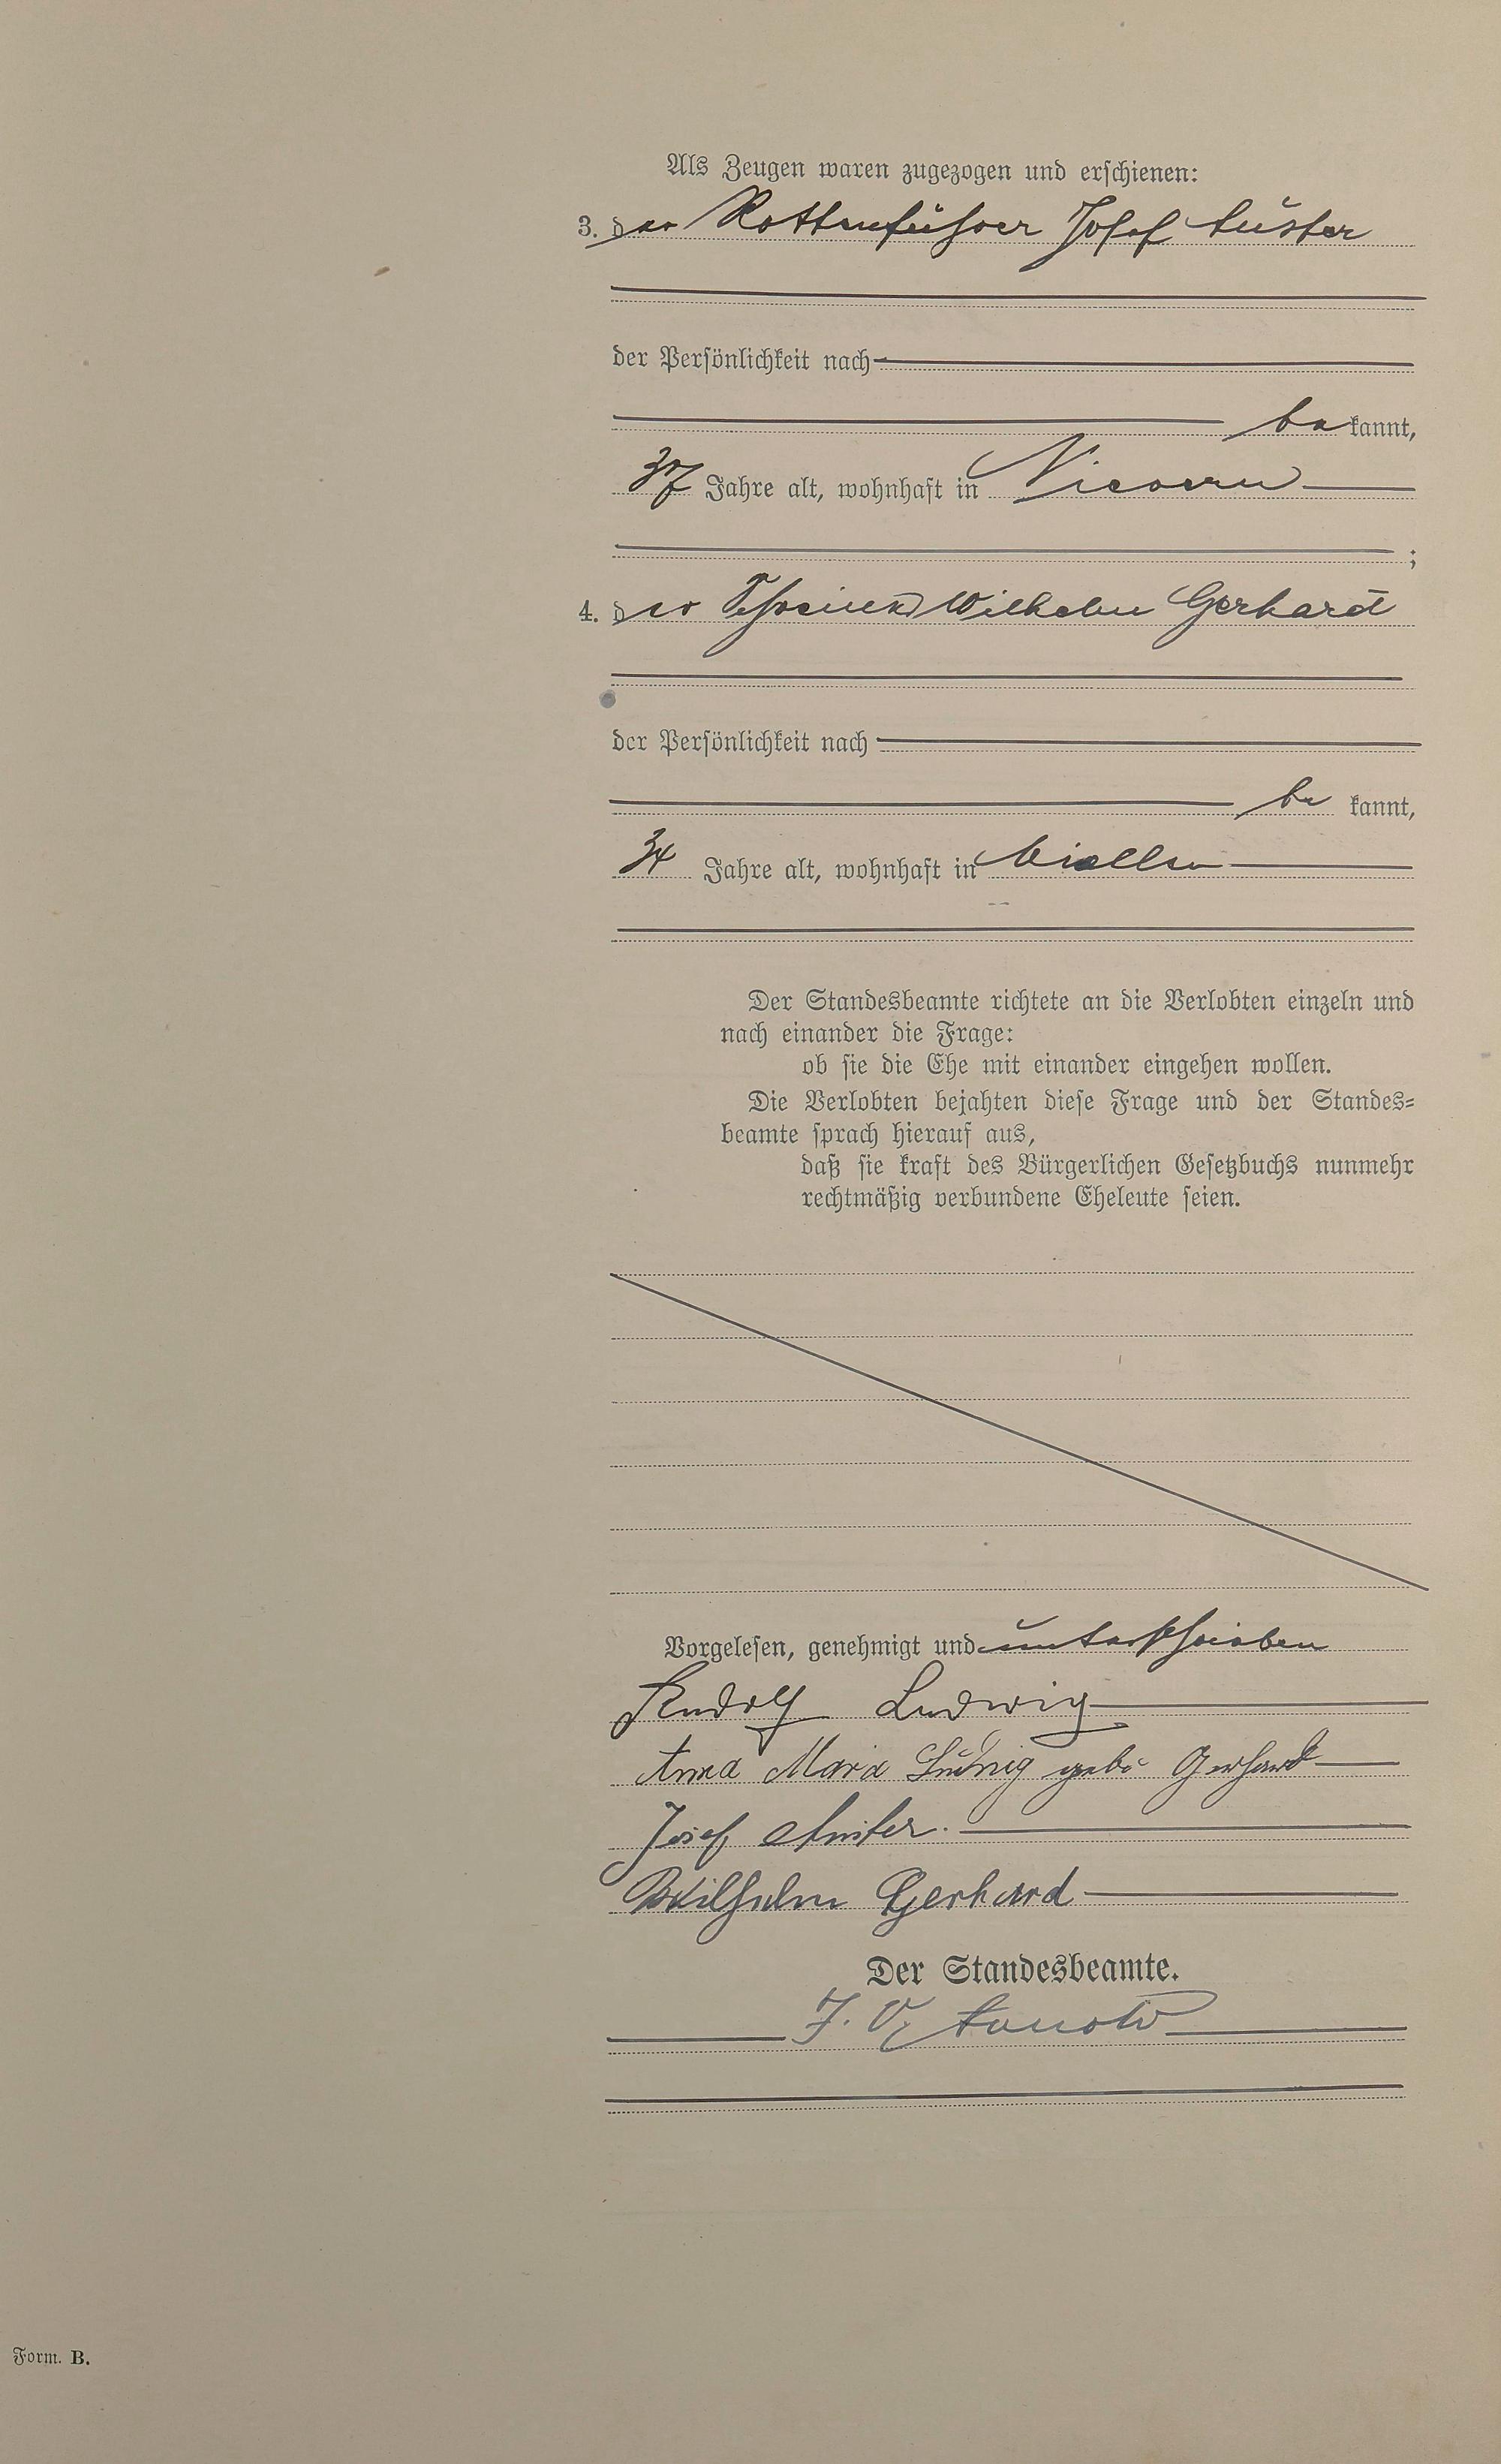 Als Zeugen waren zugezogen und erschienen:
3. der Rottenführer Josef Auster
der Persönlichkeit nach
be kannt,
37 Jahre alt, wohnhaft in Nievern
;
4. der Schreiner Wilhelm Gerhard
der Persönlichkeit nach
be kannt,
34 Jahre alt, wohnhaft in Miellen
Der Standesbeamte richtete an die Verlobten einzeln und
nach einander die Frage:
ob sie die Ehe mit einander eingehen wollen.
Die Verlobten bejahten diese Frage und der Standes=
beamte sprach hierauf aus,
daß sie kraft des Bürgerlichen Gesetzbuchs nunmehr
rechtmäßig verbundene Eheleute seien.
Vorgelesen, genehmigt und unterschrieben
Rudolf Ludwig
Anna Maria Ludwig geb. Gerhard
Josef Auster.
Wilhelm Gerhard
Der Standesbeamte.
J. V.
Form. B.